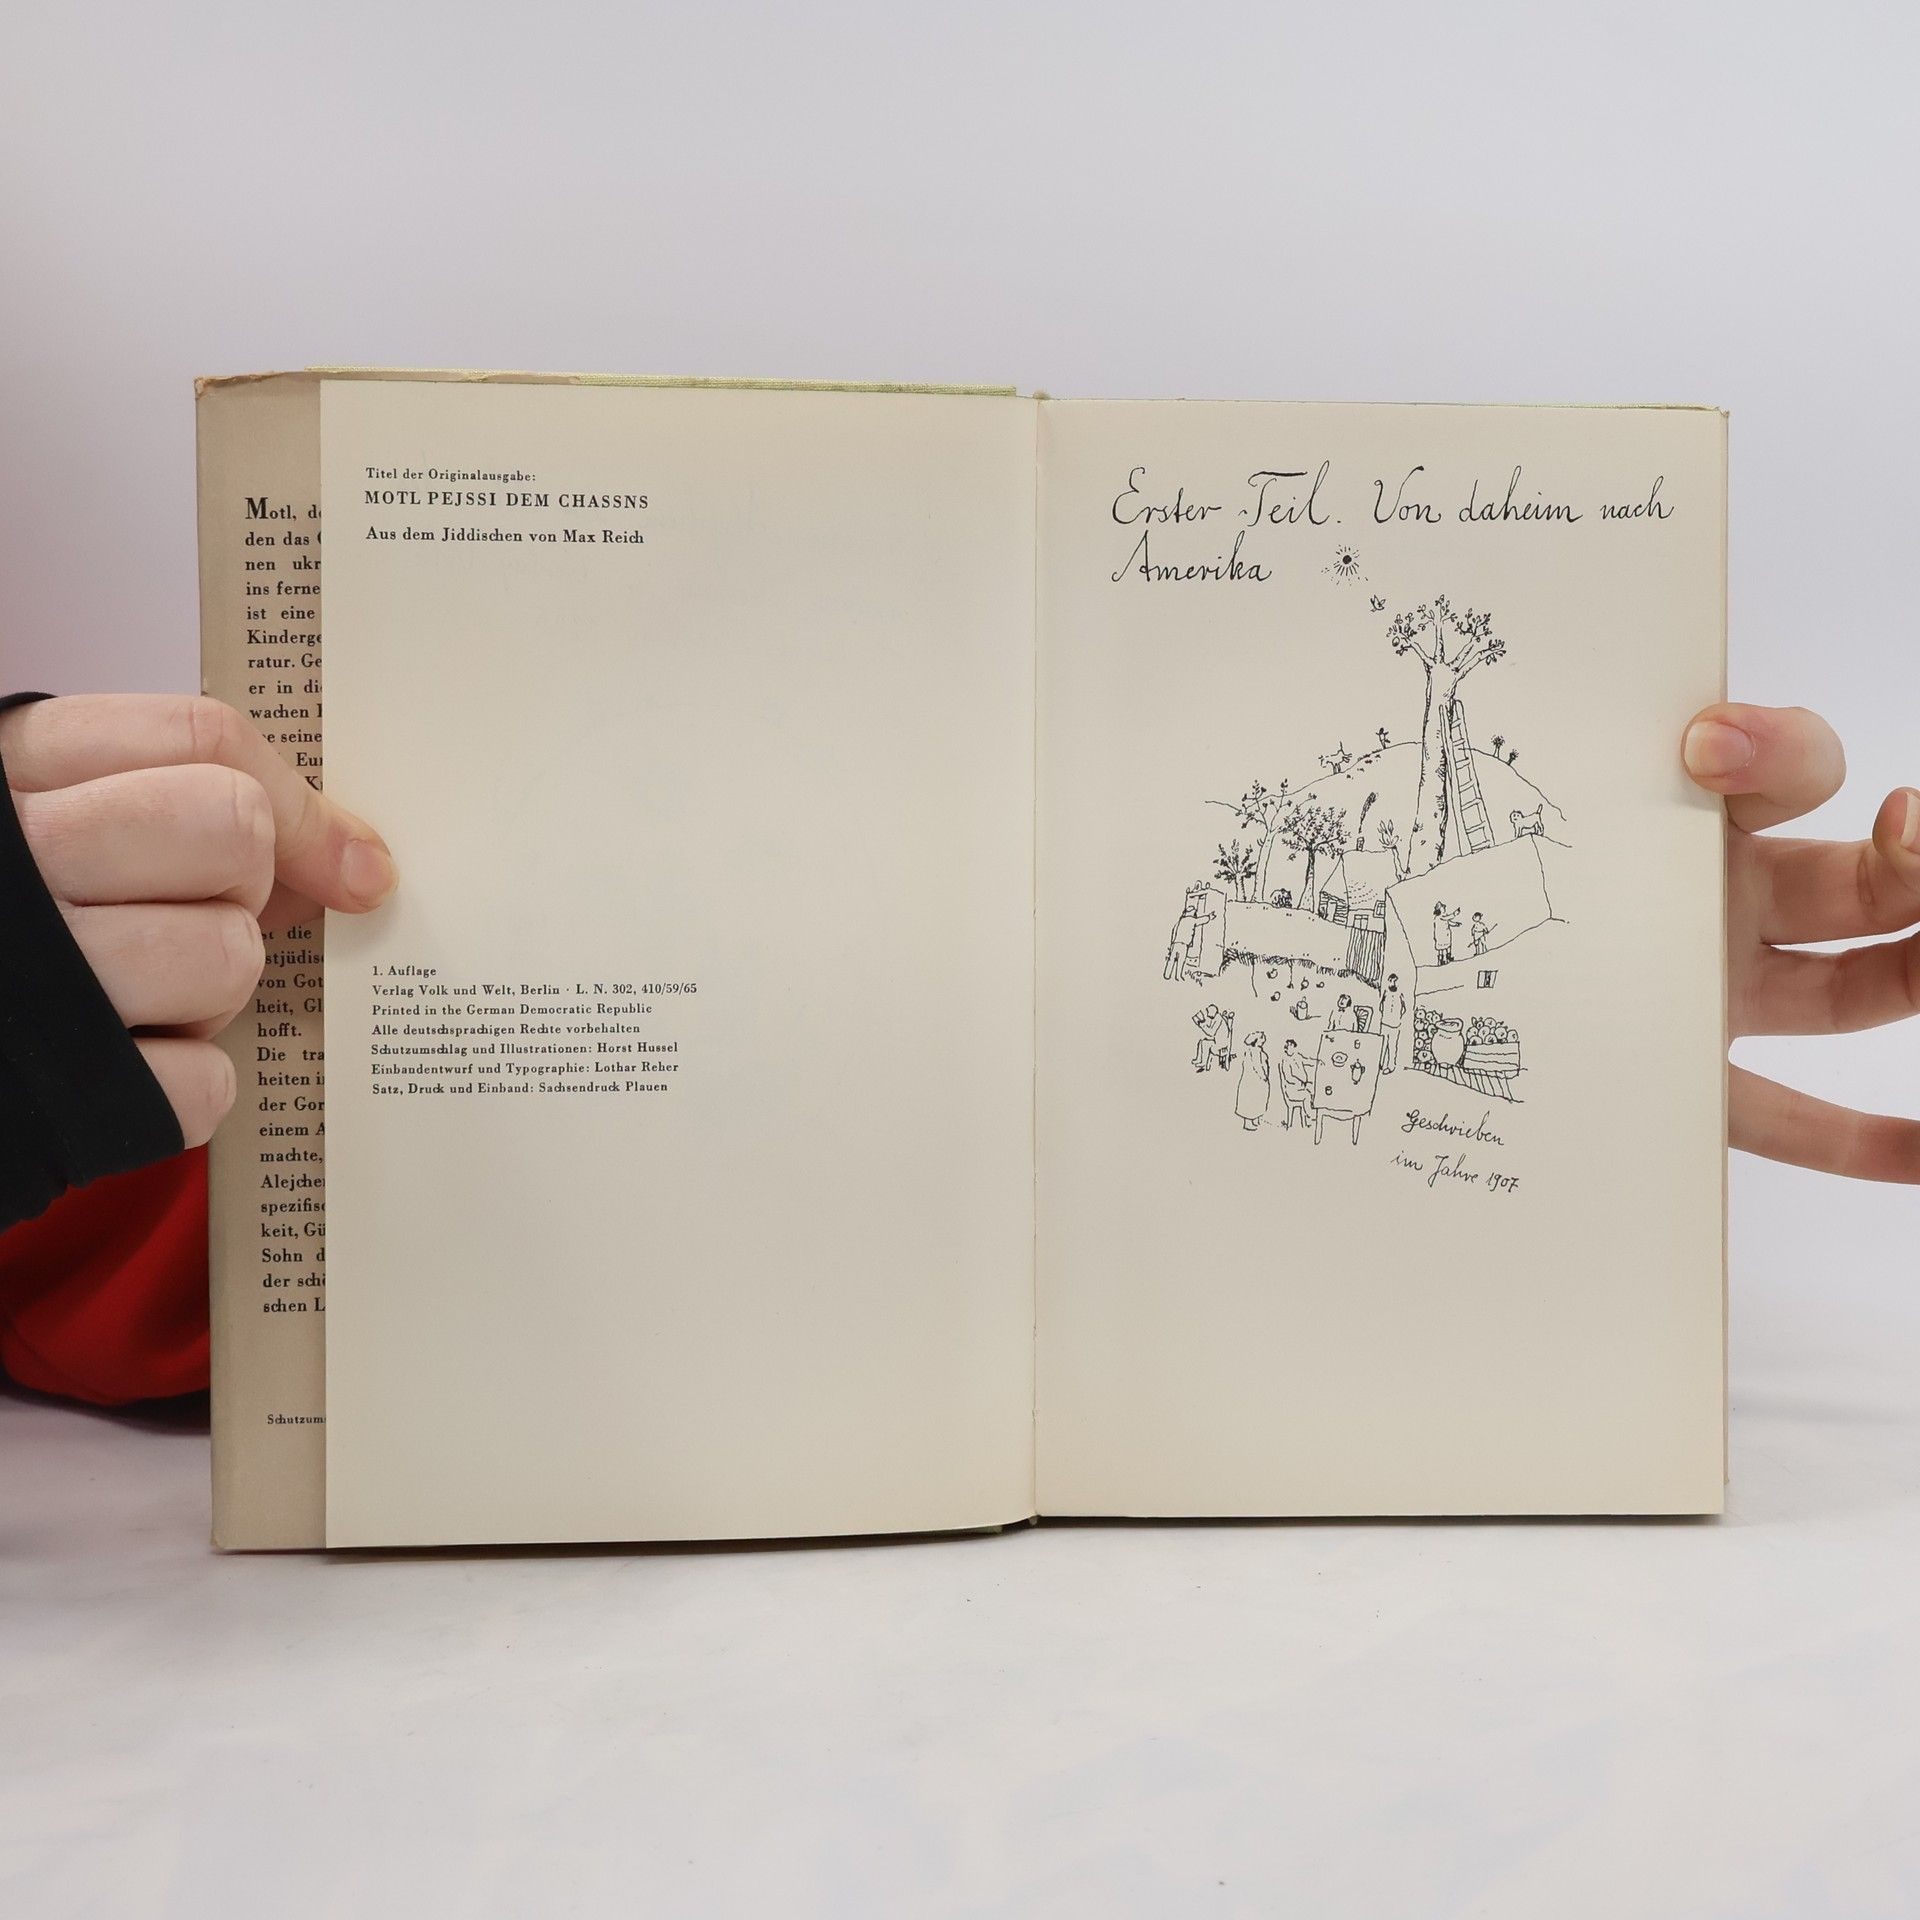 Motl, d
den das
nen ukr
ins ferne
ist eine
Kinderge
ratur. Ge
er in di
wachen
seine
Eur
die
stjüdis
von Got
heit, Gl
hofft.
Die tra
heiten i
der Gor
einem A
machte,
Alejche
spezifisc
keit, Gü
Sohn d
der schö
schen L
Schutzum
Titel der Originalausgabe:
MOTL PEJSSI DEM CHASSNS
Aus dem Jiddischen von Max Reich
1. Auflage
Verlag Volk und Welt, Berlin · L. N. 302, 410/59/65
Printed in the German Democratic Republic
Alle deutschsprachigen Rechte vorbehalten
Schutzumschlag und Illustrationen: Horst Hussel
Einbandentwurf und Typographie: Lothar Reher
Satz, Druck und Einband: Sachsendruck Plauen
Erster Teil. Von daheim nach
Amerika
Geschrieben
im Jahre 1907